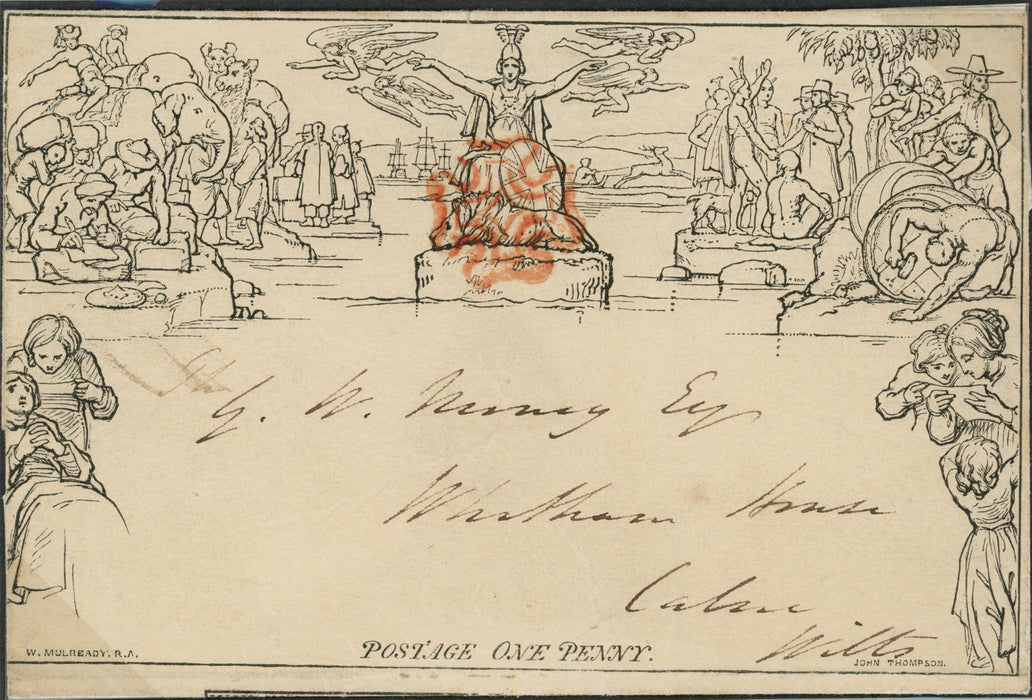 G. W. Esq
House
Calne
Wilts
POSTAGE ONE PENNY.
W. MULREADY. R.A.
JOHN THOMPSON.